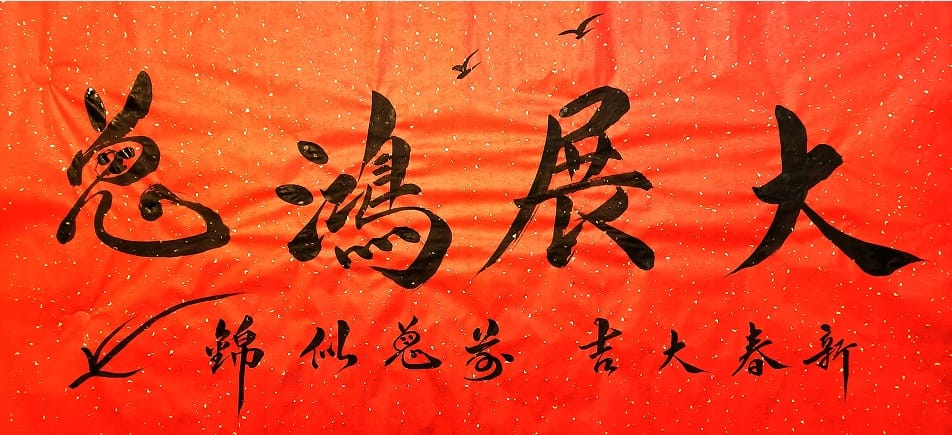 大展鴻兔
新春大吉 前兔似錦